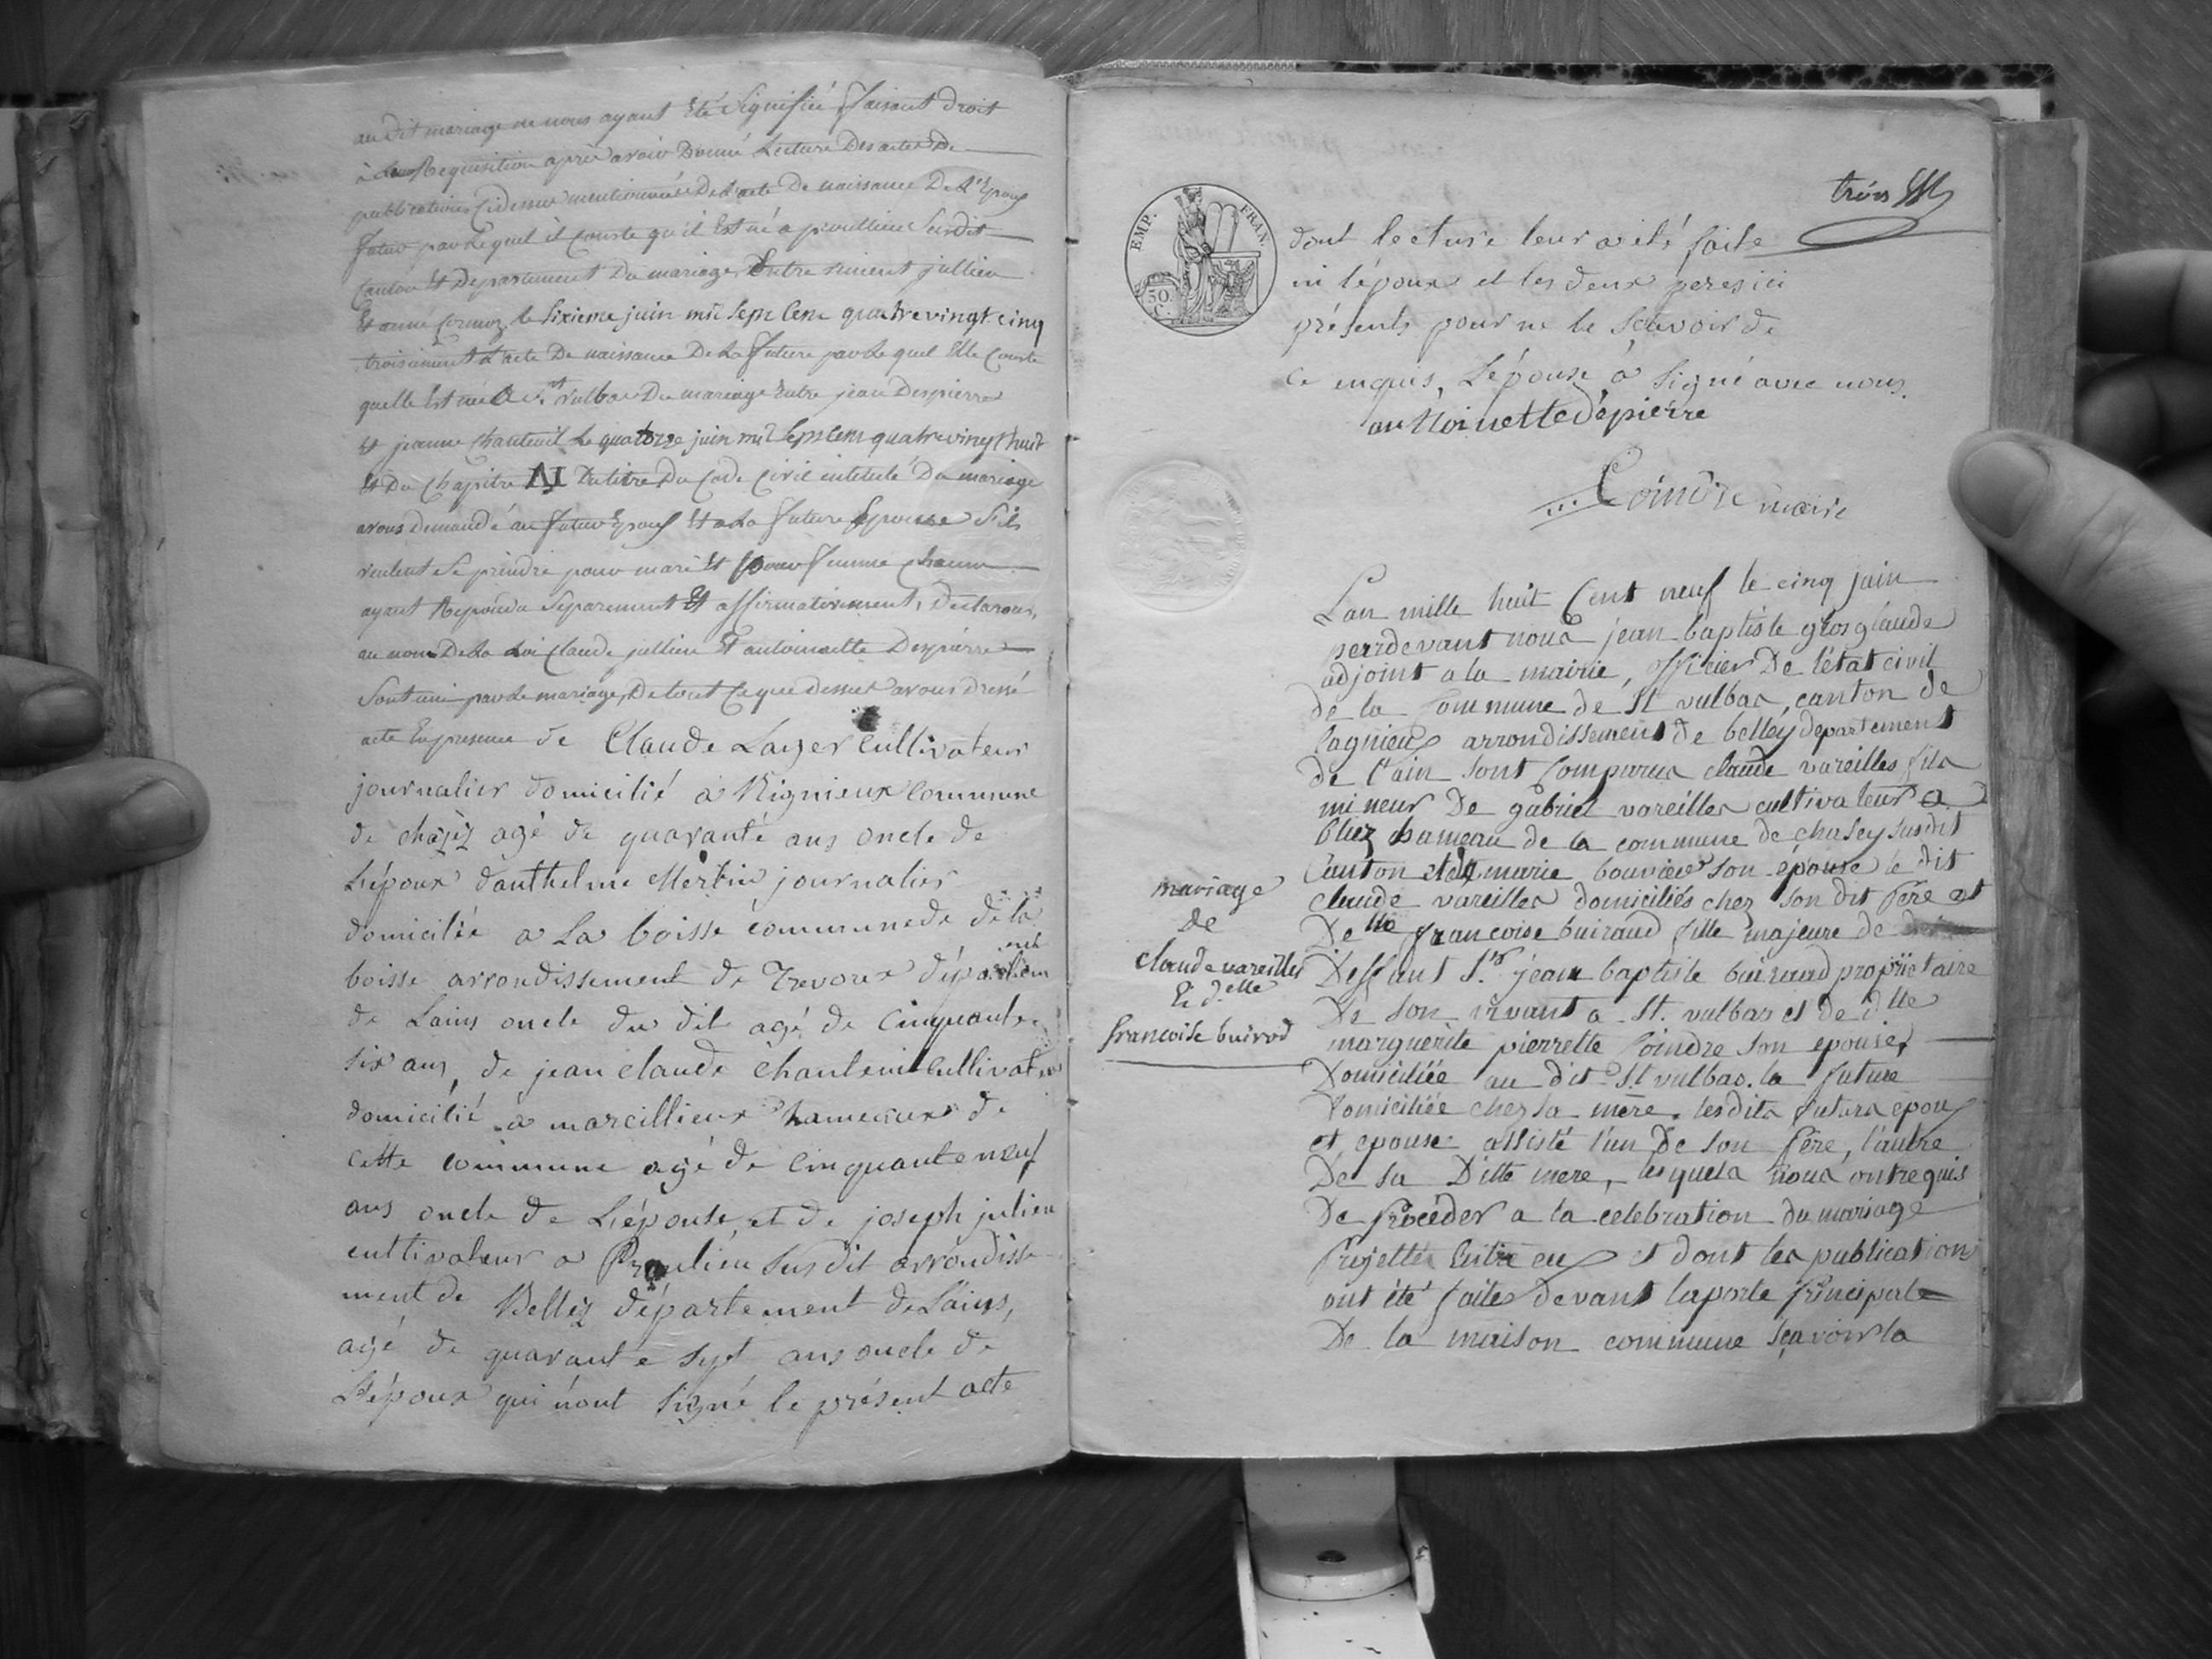 au dit mariage ne nous ayant Eté Signifiée, faisant droit
à leur Requisition après avoir Donné Lecture Des actes De
publications Cidessus mentionnées De L'acte De naissance De L'Epoux
futur par Lequel il Conste qu'il Est né a proullieu Susdit
Canton Et Departement Du mariage Entre vincent jullien
Et anne Cormoz le Sixieme juin mil Sept Cent quatre vingt cinq
troisiement L'acte De naissance De La future par Le quel Elle Conste
quelle Est née A St vulbas Du mariage Entre jean Despierre
Et jeanne Chanteuil Le quatorze juin mil Sept Cent quatre vingt huit
Et Du Chapitre VI Du titre Du Code Civil intitulé Du mariage
avons demandé au futur Epoux Et a La future Epouse S'ils
veulent Se prendre pour mari Et pour femme Chacun
ayant Repondu Séparement Et affirmativement, Declarons,
au nom De La Loi Claude jullien Et antoinette Despierre
Sont uni par Le mariage, De tout Ce que Dessus avons Dressé
acte En presence de Claude Layer Cultivateur
journalier domicilié a Rignieux Commune
de chazez agé de quarante ans oncle de
L'époux d'anthelme Merlin journalier
domiciliée a La boisse communede de la
boisse arrondissement de Trevoux départem
ent
de Lains oncle du dit agé de Cinquante
six ans, de jean claude Chanteuil Cultivateur
domicilié à marcillieux hameaux de
cette commune agé de Cinquante neuf
ans oncle de L'épouse et de joseph julien
cultivateur a Proulieu Susdit arrondisse
ment de Belley département de Lains,
agé de quarante sept ans oncle de
L'époux qui n'ont Signé le présent acte
trois
EMP. FRAN.
50. C.
dont lecture leur a été faite
ni l'époux et les deux peres ici
présents pour ne le Scavoir de
ce enquis, L'épouse a Signé avec nous.
anttoinette dépierre
Coindre maire
L'an mille huit Cent neuf le cinq juin
perrdevant nous jean baptiste grosglaude
adjoint a la mairie, officier De l'état civil
de la Commune de St vulbas, canton de
Lagnieu arrondissement de belley departement
de l'ain sont Comparus claude vareilles fils
mineur De gabriel vareilles cultivateur a
bliez hameau de la commune de chasey susdit
Canton et de marie bouvier son épouse le dit
claude vareilles domiciliés chez son dit Père et
Delle francoise buiraud fille majeure de
Deffunt Sr. jean baptiste buiraud propriétaire
De son vivant a St. vulbas et de dlle
marguerite pierrette Coindre son epouse,
Domiciliée au dit St vulbas. la future
Domiciliée chez sa mère. lesdits futurs epoux
et epouse assisté l'un De son Père, l'autre
De sa Ditte mere, lesquels nous ont requis
De Procéder a la celebration du mariage
Projetté Entre eux et dont les publication
ont été faites devant la porte Principale
De la maison commune Sçavoir la
mariage
de
claude vareilles
Et d.elle
francoise buirod